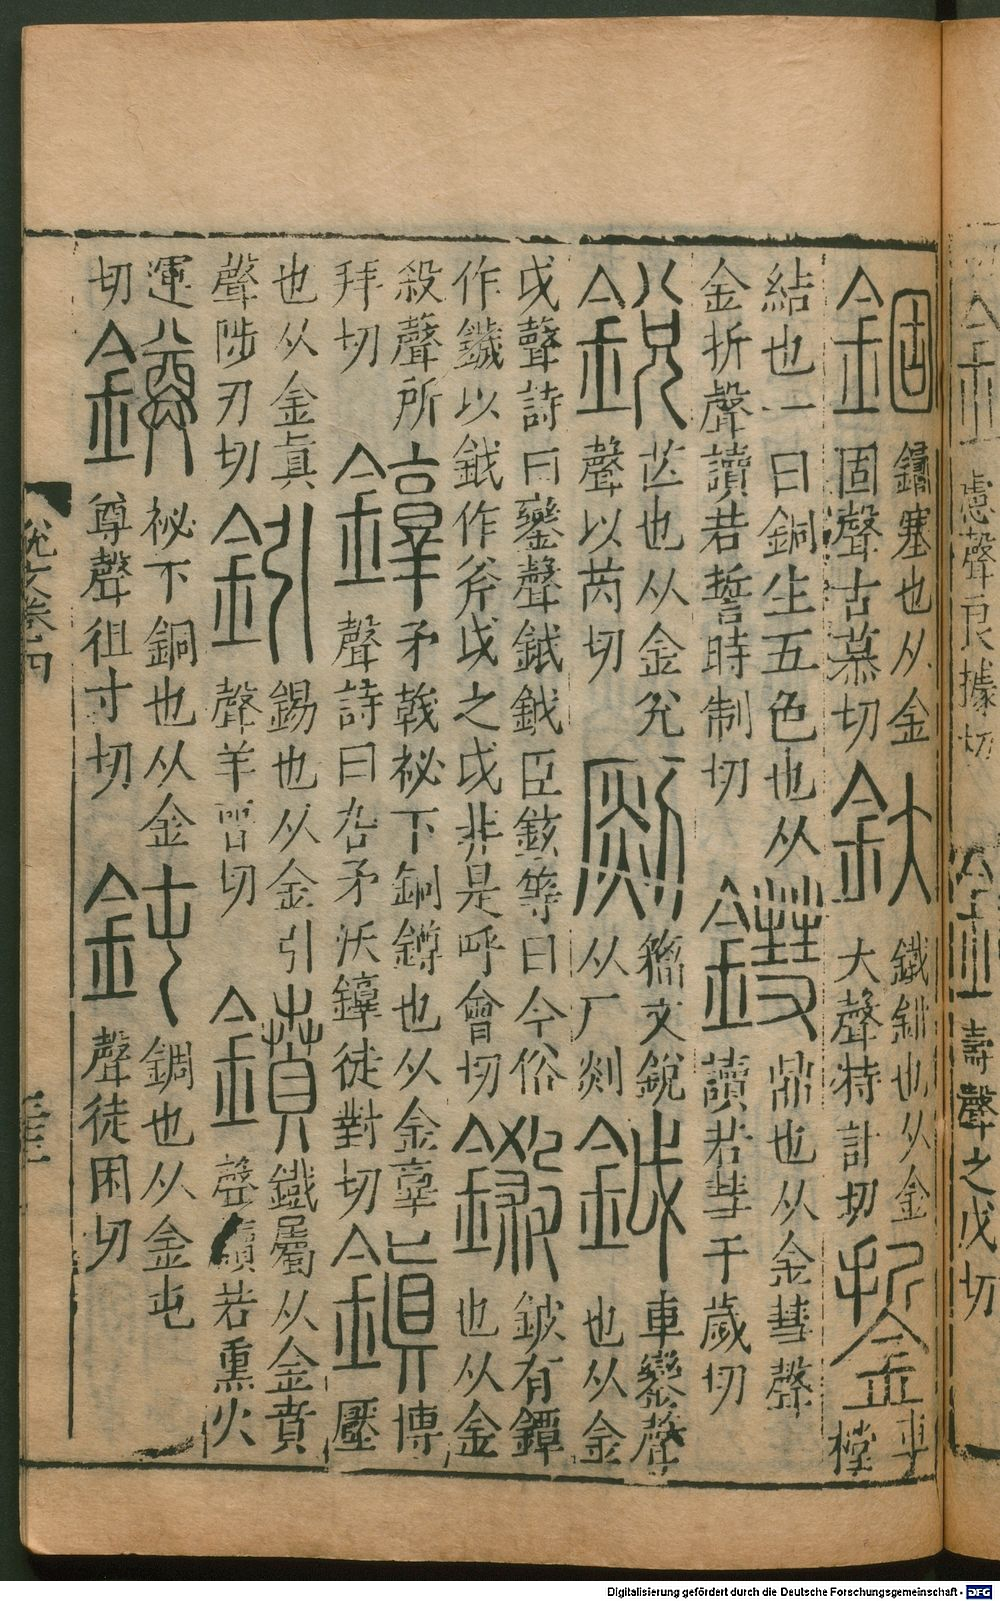 慮聲良據切
鑄
壽聲之戍切
錮
鑄塞也从金
固聲古慕切
釱
鐵鉗也从金
大聲特計切
銴
車樘
結也一曰銅生五色也从
金折聲讀若誓時制切
鏏
鼎也从金彗聲
讀若彗于歲切
銳
芒也从金兌
聲以芮切
㓹
籒文銳
从厂剡
鉞
車鑾聲
也从金
戉聲詩曰鑾聲鉞鉞臣鉉等曰今俗
作鐬以鉞作斧戉之戉非是呼會切
鎩
鈹有鐔
也从金
殺聲所
拜切
錞
矛戟柲下銅鐏也从金𦎫
聲詩曰厹矛沃錞徒對切
鎮
博壓
也从金眞
聲陟刃切
鈏
錫也从金引
聲羊晉切
鐼
鐵屬从金賁
聲讀若熏火
運
切
鐏
柲下銅也从金
尊聲徂寸切
鈍
錭也从金屯
聲徒困切
說文卷十四
Digitalisierung gefördert durch die Deutsche Forschungsgemeinschaft - DFG